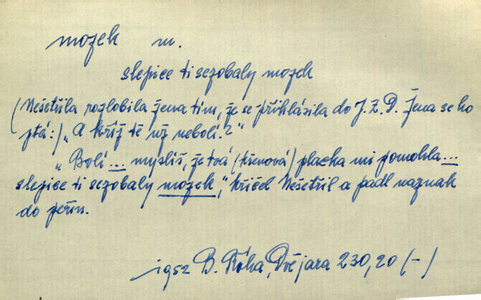 mozek m.
slepice ti sezobaly mozek
(Nešetřila rozlobila žena tím, že se přihlásila do J.Z.D. Žena se ho
ptá:) „A kříž tě už nebolí?"
„Bolí ... myslíš, že tvá (křenová) placka mi pomohla ...
slepice ti sezobaly mozek," křičel Nešetřil a padl naznak
do peřin.
1952 B. Říha, Dvě jara 230, 20 (-)